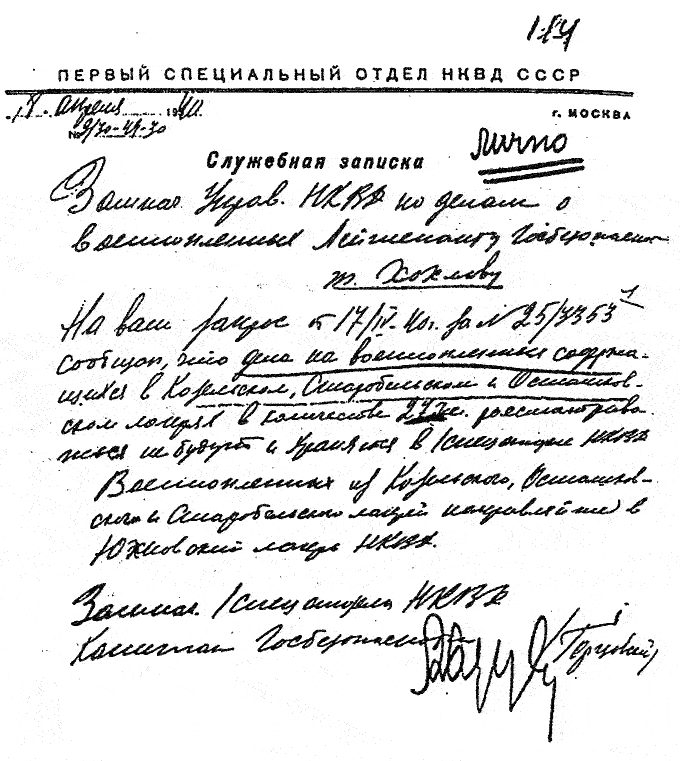 184
ПЕРВЫЙ СПЕЦИАЛЬНЫЙ ОТДЕЛ НКВД СССР
18. апреля 1940.
г. МОСКВА
№ 9/30-49-30
лично
Служебная записка
Замнач. Управ. НКВД по делам о
военнопленных Лейтенанту Госбезопасност
т. Хохлову
На ваш запрос от 17/IV-40г. за № 25/3353
сообщаю, что дела на военнопленных содержа-
щихся в Козельском, Старобельском и Осташков-
ском лагерях в количестве рассматрива-
ться не будут и хранятся в 1 спецотделе НКВД
Военнопленных из Козельского, Осташков-
ского и Старобельского лагерей направляйте в
Юхновский лагерь НКВД.
Замнач. 1 спецотдела НКВД
Капитан Госбезопасности
/Герцовский/